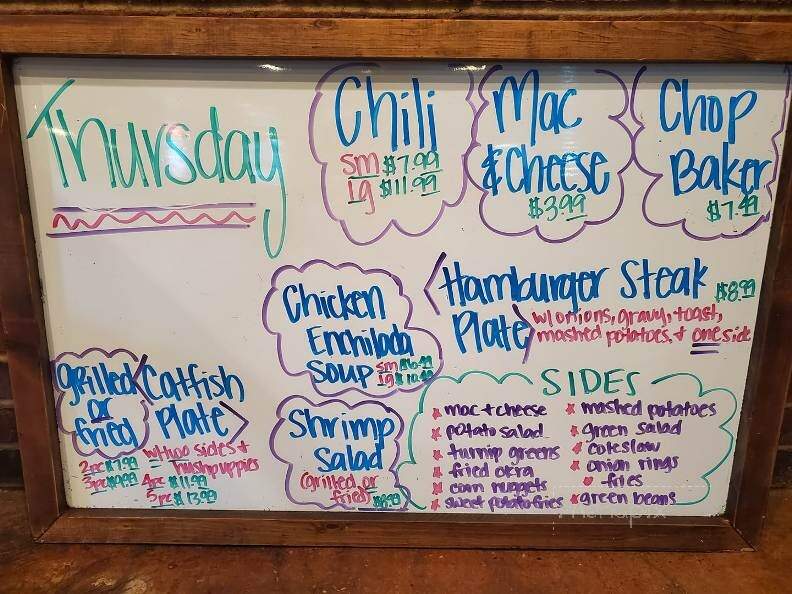 Thursday
Chili
sm $7.99
lg $11.99
Mac
& Cheese
$3.99
Chop
Baker
$7.49
Chicken
Enchilada
Soup
sm $6.99
lg $10.49
Hamburger Steak $8.99
Plate w/ onions, gravy, toast,
mashed potatoes, + one side
grilled
or
fried
Catfish
Plate
w/ two sides +
hushpuppies
2pc $7.99
3pc $9.99
4pc $11.99
5pc $13.99
Shrimp
Salad
(grilled or
fried) $8.99
SIDES
mac + cheese
potato salad
turnip greens
fried okra
corn nuggets
sweet potato fries
mashed potatoes
green salad
coleslaw
onion rings
-fries
green beans